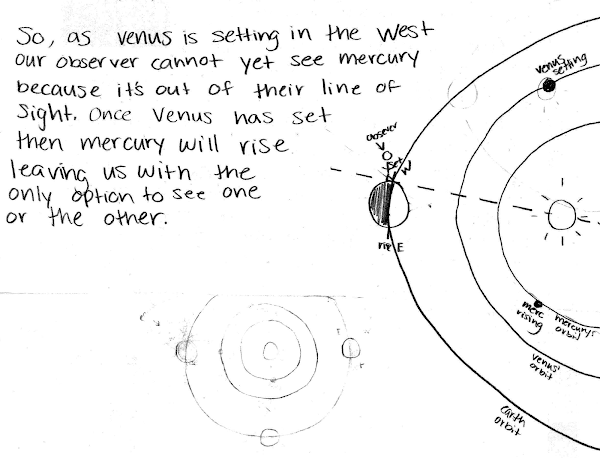 So, as venus is setting in the west
our observer cannot yet see mercury
because it's out of their line of
sight. Once Venus has set
then mercury will rise
leaving us with the
only option to see one
or the other.
venus
setting
observer
set
W
rise E
merc
rising
mercury's
orbit
venus'
orbit
earth
orbit